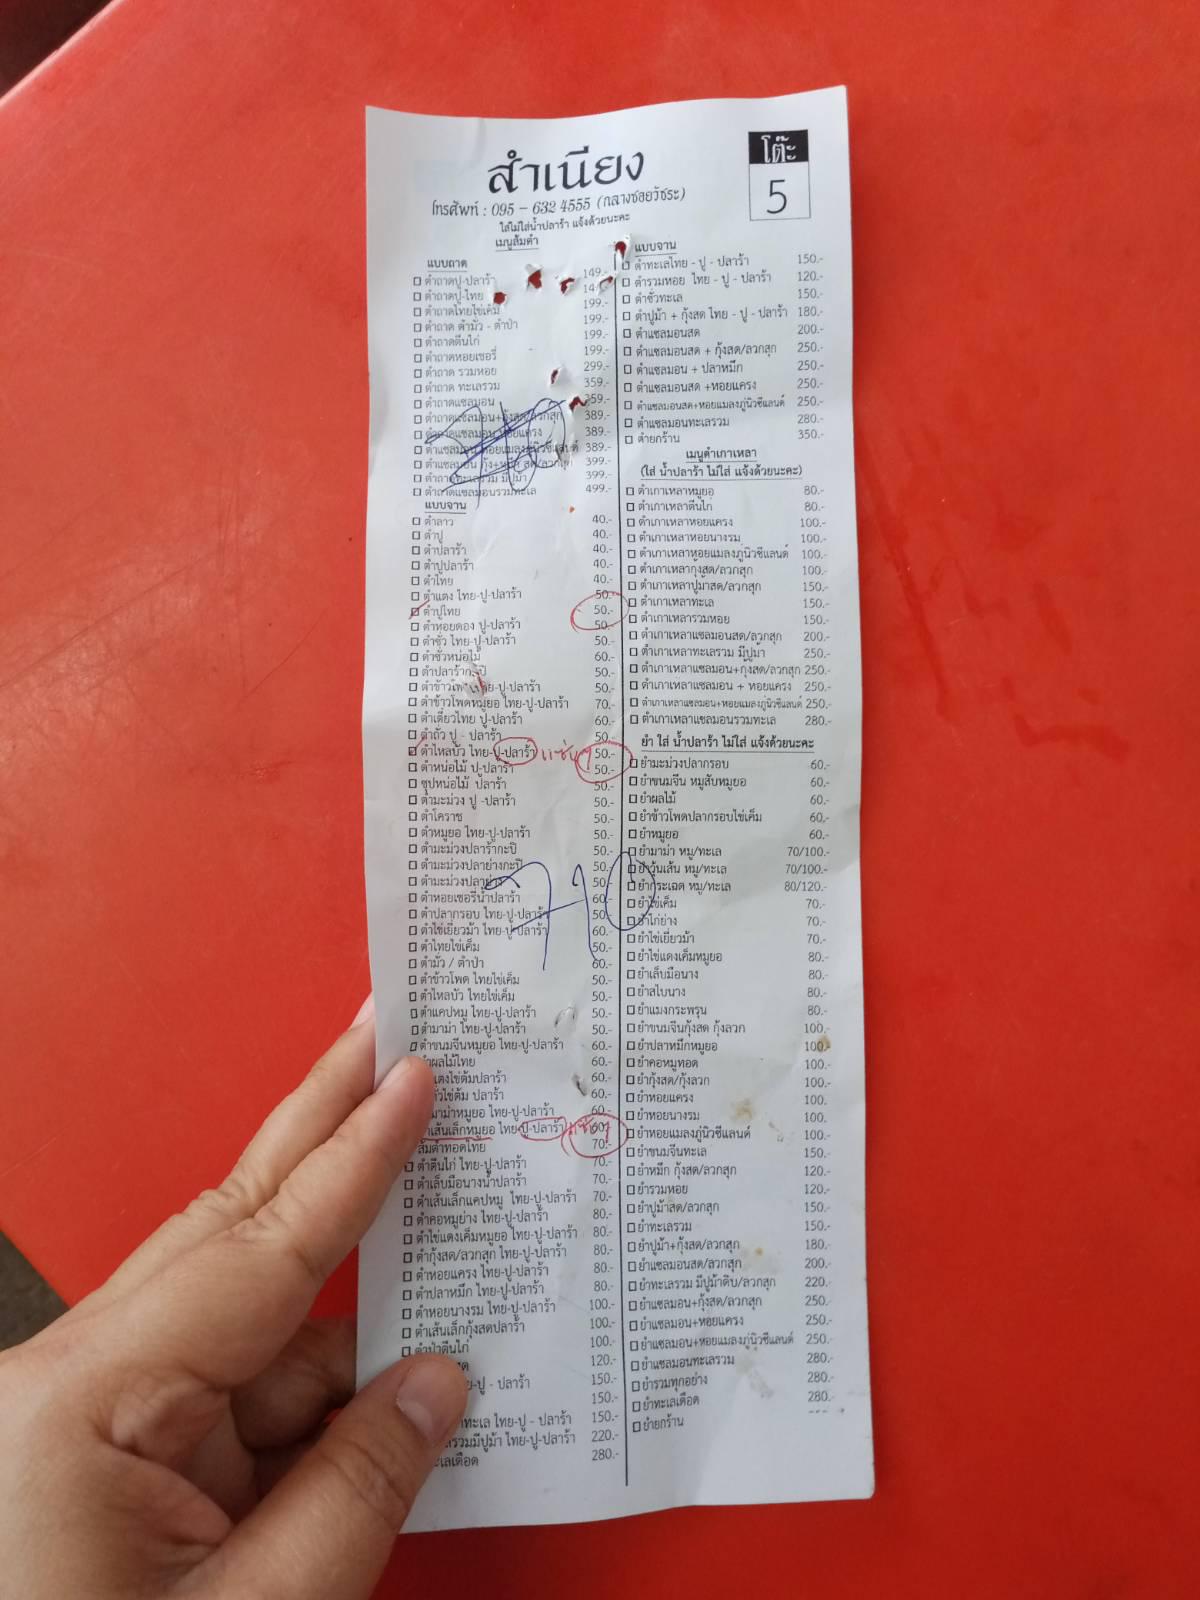 สำเนียง
โต๊ะ
5
โทรศัพท์ : 095 - 632 4555 (กลางซอยวัชระ)
ใส่ไม่ใส่น้ำปลาร้า แจ้งด้วยนะคะ
เมนูส้มตำ
แบบถาด
ตำถาดปู-ปลาร้า 149.-
ตำถาดปู-ไทย
ตำถาดไทยไข่เค็ม 199.-
ตำถาด ตำมั่ว - ตำป่า 199.-
ตำถาดตีนไก่ 199.-
ตำถาดหอยเชอรี่ 199.-
ตำถาด รวมหอย 299.-
ตำถาด ทะเลรวม 359.-
ตำถาดแซลมอน 359.-
ตำถาดแซลมอน+กุ้งสด/ลวกสุก 389.-
ตำถาดแซลมอน หอยแครง 389.-
ตำแซลมอน หอยแมลงภู่นิวซีแลนด์ 389.-
ตำแซลมอน กุ้ง+หมึก สด/ลวกสุก 399.-
ตำถาดทะเลรวม มีปูม้า 399.-
ตำถาดแซลมอนรวมทะเล 499.-
แบบจาน
ตำลาว 40.-
ตำปู 40.-
ตำปลาร้า 40.-
ตำปูปลาร้า 40.-
ตำไทย 40.-
ตำแตง ไทย-ปู-ปลาร้า 50.-
ตำปูไทย 50.-
ตำหอยดอง ปู-ปลาร้า 50.-
ตำซั่ว ไทย-ปู-ปลาร้า 50.-
ตำซั่วหน่อไม้ 60.-
ตำปลาร้ากะปิ 50.-
ตำข้าวโพด ไทย-ปู-ปลาร้า 50.-
ตำข้าวโพดหมูยอ ไทย-ปู-ปลาร้า 70.-
ตำเตี๋ยวไทย ปู-ปลาร้า 60.-
ตำถั่ว ปู - ปลาร้า 50.-
ตำไหลบัว ไทย-ปู-ปลาร้า แซ่บๆ 50.-
ตำหน่อไม้ ปู-ปลาร้า 50.-
ซุปหน่อไม้ ปลาร้า 50.-
ตำมะม่วง ปู -ปลาร้า 50.-
ตำโคราช 50.-
ตำหมูยอ ไทย-ปู-ปลาร้า 50.-
ตำมะม่วงปลาร้ากะปิ 50.-
ตำมะม่วงปลาย่างกะปิ 50.-
ตำมะม่วงปลาย่าง 50.-
ตำหอยเชอรี่น้ำปลาร้า 60.-
ตำปลากรอบ ไทย-ปู-ปลาร้า 50.-
ตำไข่เยี่ยวม้า ไทย-ปู-ปลาร้า 60.-
ตำไทยไข่เค็ม 50.-
ตำมั่ว / ตำป่า 60.-
ตำข้าวโพด ไทยไข่เค็ม 50.-
ตำไหลบัว ไทยไข่เค็ม 50.-
ตำแคปหมู ไทย-ปู-ปลาร้า 50.-
ตำมาม่า ไทย-ปู-ปลาร้า 50.-
ตำขนมจีนหมูยอ ไทย-ปู-ปลาร้า 60.-
ตำผลไม้ไทย 60.-
แตงไข่ต้มปลาร้า 60.-
ถั่วไข่ต้ม ปลาร้า 60.-
มาม่าหมูยอ ไทย-ปู-ปลาร้า 60.-
ตำเส้นเล็กหมูยอ ไทย-ปู-ปลาร้า แซ่บๆ 60.-
ส้มตำทอดไทย 70.-
ตำตีนไก่ ไทย-ปู-ปลาร้า 70.-
ตำเล็บมือนางน้ำปลาร้า 70.-
ตำเส้นเล็กแคปหมู ไทย-ปู-ปลาร้า 70.-
ตำคอหมูย่าง ไทย-ปู-ปลาร้า 80.-
ตำไข่แดงเค็มหมูยอ ไทย-ปู-ปลาร้า 80.-
ตำกุ้งสด/ลวกสุก ไทย-ปู-ปลาร้า 80.-
ตำหอยแครง ไทย-ปู-ปลาร้า 80.-
ตำปลาหมึก ไทย-ปู-ปลาร้า 80.-
ตำหอยนางรม ไทย-ปู-ปลาร้า 100.-
ตำเส้นเล็กกุ้งสดปลาร้า 100.-
ตำป่าตีนไก่ 100.-
120.-
ย-ปู - ปลาร้า 150.-
150.-
ทะเล ไทย-ปู - ปลาร้า 150.-
รวมมีปูม้า ไทย-ปู-ปลาร้า 220.-
ทะเลเดือด 280.-
แบบจาน
ตำทะเลไทย - ปู - ปลาร้า 150.-
ตำรวมหอย ไทย - ปู - ปลาร้า 120.-
ตำซั่วทะเล 150.-
ตำปูม้า + กุ้งสด ไทย - ปู - ปลาร้า 180.-
ตำแซลมอนสด 200.-
ตำแซลมอนสด + กุ้งสด/ลวกสุก 250.-
ตำแซลมอน + ปลาหมึก 250.-
ตำแซลมอนสด +หอยแครง 250.-
ตำแซลมอนสด+หอยแมลงภู่นิวซีแลนด์ 250.-
ตำแซลมอนทะเลรวม 280.-
ตำยกร้าน 350.-
เมนูตำเกาเหลา
(ใส่ น้ำปลาร้า ไม่ใส่ แจ้งด้วยนะคะ)
ตำเกาเหลาหมูยอ 80.-
ตำเกาเหลาตีนไก่ 80.-
ตำเกาเหลาหอยแครง 100.-
ตำเกาเหลาหอยนางรม 100.-
ตำเกาเหลาหอยแมลงภู่นิวซีแลนด์ 100.-
ตำเกาเหลากุ้งสด/ลวกสุก 100.-
ตำเกาเหลาปูม้าสด/ลวกสุก 150.-
ตำเกาเหลาทะเล 150.-
ตำเกาเหลารวมหอย 150.-
ตำเกาเหลาแซลมอนสด/ลวกสุก 200.-
ตำเกาเหลาทะเลรวม มีปูม้า 250.-
ตำเกาเหลาแซลมอน+กุ้งสด/ลวกสุก 250.-
ตำเกาเหลาแซลมอน + หอยแครง 250.-
ตำเกาเหลาแซลมอน+หอยแมลงภู่นิวซีแลนด์ 250.-
ตำเกาเหลาแซลมอนรวมทะเล 280.-
ยำ ใส่ น้ำปลาร้า ไม่ใส่ แจ้งด้วยนะคะ
ยำมะม่วงปลากรอบ 60.-
ยำขนมจีน หมูสับหมูยอ 60.-
ยำผลไม้ 60.-
ยำข้าวโพดปลากรอบไข่เค็ม 60.-
ยำหมูยอ 60.-
ยำมาม่า หมู/ทะเล 70/100.-
ยำวุ้นเส้น หมู/ทะเล 70/100.-
ยำกระเฉด หมู/ทะเล 80/120.-
ยำไข่เค็ม 70.-
ยำไก่ย่าง 70.-
ยำไข่เยี่ยวม้า 70.-
ยำไข่แดงเค็มหมูยอ 80.-
ยำเล็บมือนาง 80.-
ยำสไบนาง 80.-
ยำแมงกระพรุน 80.-
ยำขนมจีนกุ้งสด กุ้งลวก 100.-
ยำปลาหมึกหมูยอ 100.-
ยำคอหมูทอด 100.-
ยำกุ้งสด/กุ้งลวก 100.-
ยำหอยแครง 100.
ยำหอยนางรม 100.
ยำหอยแมลงภู่นิวซีแลนด์ 100.-
ยำขนมจีนทะเล 150.-
ยำหมึก กุ้งสด/ลวกสุก 120.-
ยำรวมหอย 120.-
ยำปูม้าสด/ลวกสุก 150.-
ยำทะเลรวม 150.-
ยำปูม้า+กุ้งสด/ลวกสุก 180.-
ยำแซลมอนสด/ลวกสุก 200.-
ยำทะเลรวม มีปูม้าดิบ/ลวกสุก 220.-
ยำแซลมอน+กุ้งสด/ลวกสุก 250.-
ยำแซลมอน+หอยแครง 250.-
ยำแซลมอน+หอยแมลงภู่นิวซีแลนด์ 250.-
ยำแซลมอนทะเลรวม 280.-
ยำรวมทุกอย่าง 280.-
ยำทะเลเดือด 280.-
ยำยกร้าน